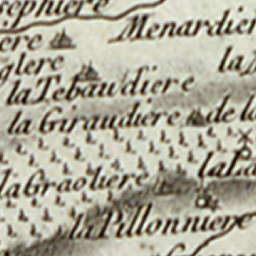 sephiniere
Menardier
ere
glere
la
la Tebaudiere
la Giraudiere
de la
la Graoliere
la La
la Pillonniere